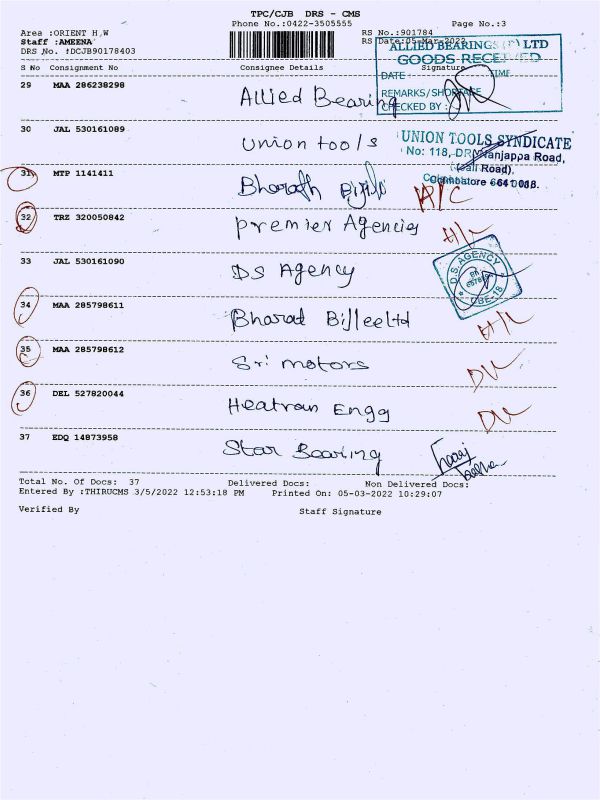 TPC/CJB DRS - CMS
Phone No.:0422-3505555 Page No.:3
Area :ORIENT H,W RS No.:901784
Staff :AMEENA RS Date:05-Mar-2022
DRS No. :DCJB90178403
ALLIED BEARINGS (P) LTD
GOODS RECEIVED
DATE TIME
REMARKS/SHORTAGE
CHECKED BY :
S No Consignment No Consignee Details Signature
29 MAA 286238298 Allied Bearing
30 JAL 530161089 Union tools
UNION TOOLS SYNDICATE
No: 118, DR Nanjappa Road,
Road),
Coimbatore - 641 018.
31 MTP 1141411 Bharath Bijili
32 TRZ 320050842 Premier Agencies
33 JAL 530161090 DS Agency
D.S. AGENCY
CBE-18
34 MAA 285798611 Bharat Bijlee Ltd
35 MAA 285798612 Sri motors
36 DEL 527820044 Heatran Engg
37 EDQ 14873958 Star Bearing
Total No. Of Docs: 37 Delivered Docs: Non Delivered Docs:
Entered By :THIRUCMS 3/5/2022 12:53:18 PM Printed On: 05-03-2022 10:29:07
Verified By Staff Signature